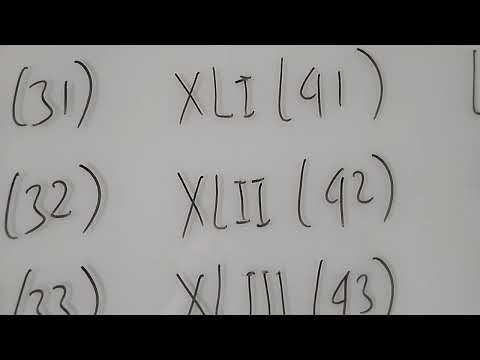 (31) XLI (41)
(32) XLII (42)
(33) XLIII (43)